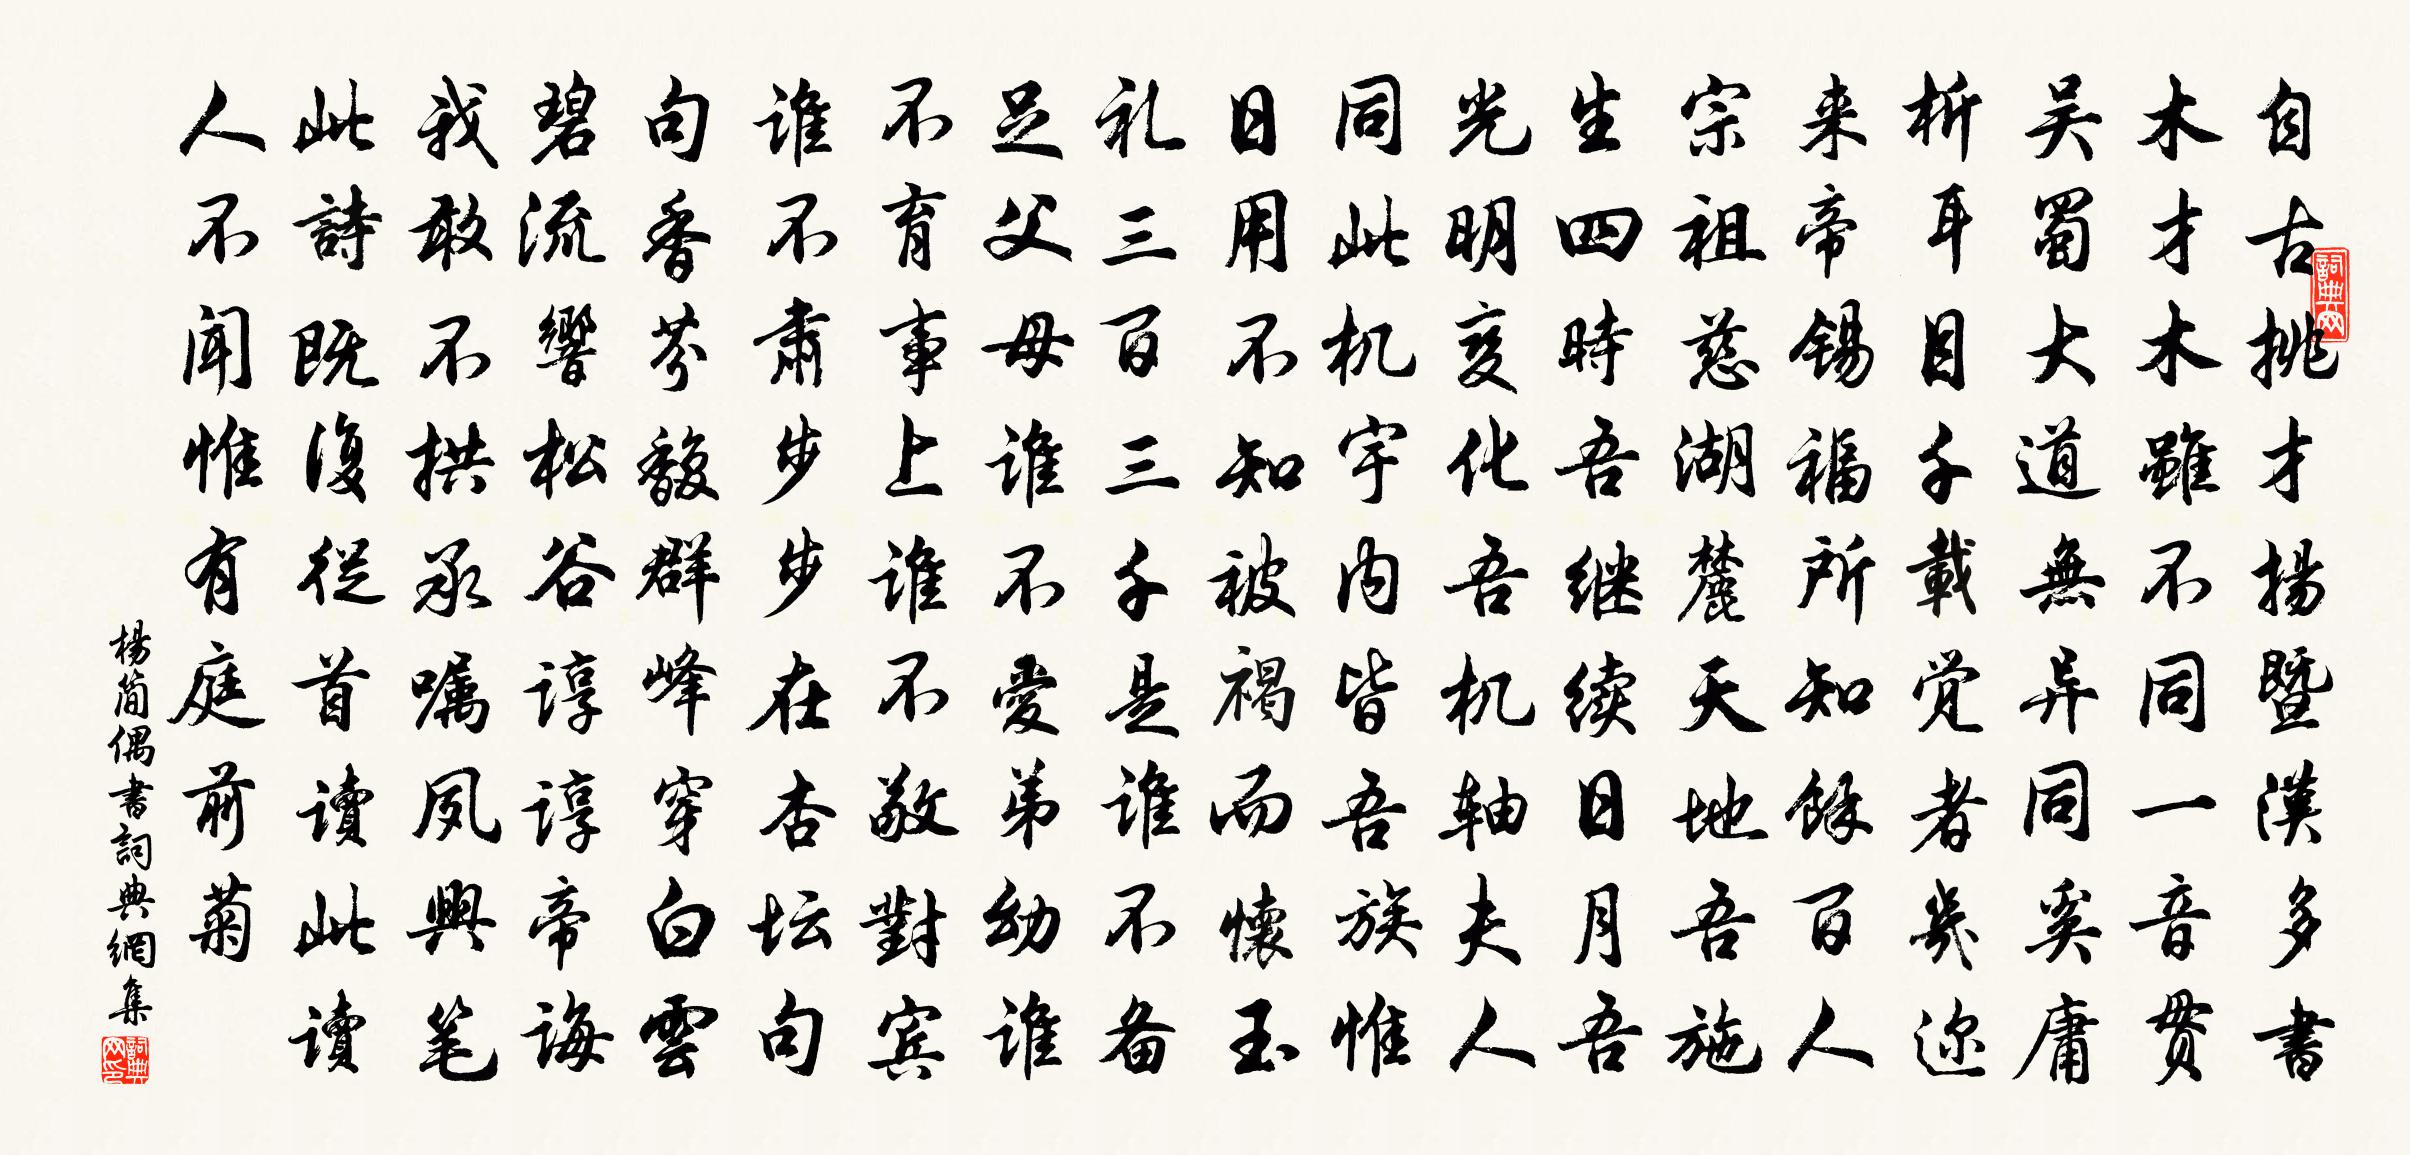 自古挑才揚暨漢多書
木才木木雖不同一音貫
吴蜀大道無异同奚庸
析耳目千載觉者幾迩
来帝锡福所知餘百人
宗祖慈湖麓天地吾施
生四時吾继续日月吾
光明变化吾机轴夫人
同此机宇内皆吾族惟
日用不知被褐而懷玉
礼三百三千是谁不备
足父母谁不愛弟幼谁
不育事上谁不敬對宾
谁不肃步步在杏坛句
句香芬馥群峰穿白雲
碧流響松谷谆谆帝诲
我敢不拱承嘱夙興笔
此詩既復從首读此读
人不闻惟有庭前菊
楊简偶書詞典網集
詞典网
詞典网印